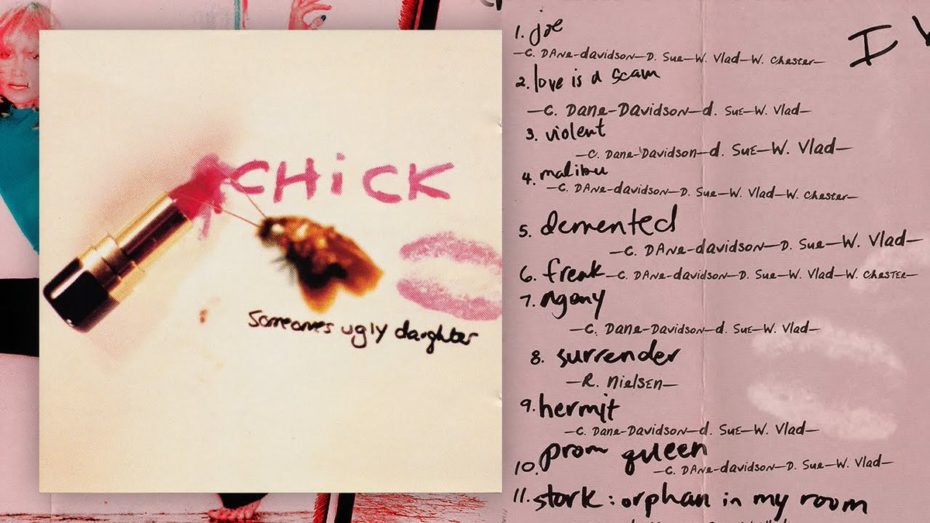 CHiCK
someone's ugly daughter
1. joe
—C. DAne-davidson—D. Sue—W. Vlad—W. Chester—
2. love is a scam
—C. Dane-Davidson—d. SuE—W. Vlad—
3. violent
—C. Dane-Davidson—d. SuE—W. Vlad—
4. malibu
—C. DAne-davidson—D. Sue—W. Vlad—W. Chester—
5. demented
—C. DAne-davidson—D. Sue—W. Vlad—
6. freak—C. DAne-davidson—D. Sue—W. Vlad—W. CHESTER—
7. Agony
—C. Dane-Davidson—d. SuE—W. Vlad—
8. surrender
—R. NIelsen—
9. hermit
—C. Dane-Davidson—d. SuE—W. Vlad—
10. prom queen
—C. DAne-davidson—D. Sue—W. Vlad—
11. stork: orphan in my room
I